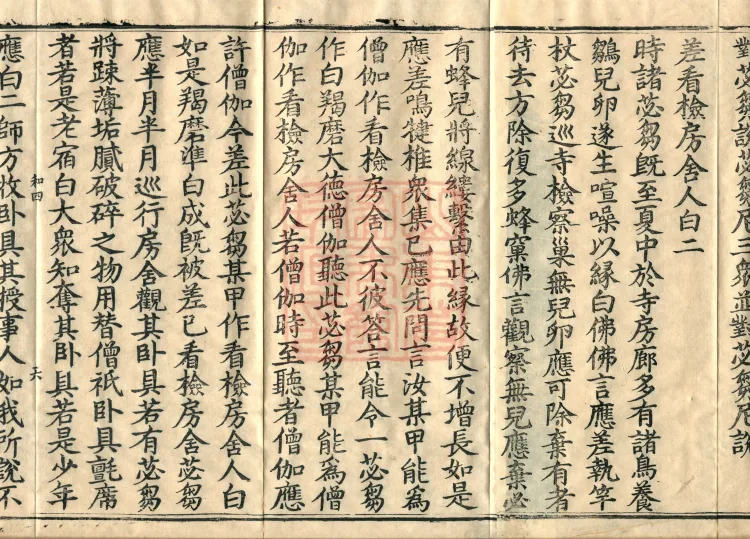 對苾芻說苾芻尼三衆並對苾芻尼說
差看檢房舍人白二
時諸苾芻旣至夏中於寺房廊多有諸鳥養
鶵兒卵遂生喧噪以緣白佛佛言應差執竿
杖苾芻巡寺檢察巢無兒卵應可除棄有者
待去方除復多蜂窠佛言觀察無兒應棄必
有蜂兒將線縷繫由此緣故便不增長如是
應差鳴犍椎衆集已應先問言汝某甲能爲
僧伽作看檢房舍人不彼答言能令一苾芻
作白羯磨大德僧伽聽此苾芻某甲能爲僧
伽作看檢房舍人若僧伽時至聽者僧伽應
許僧伽今差此苾芻某甲作看檢房舍人白
如是羯磨準白成旣被差已看檢房舍苾芻
應半月半月巡行房舍觀其卧具若有苾芻
將踈薄垢膩破碎之物用替僧祇卧具氈席
者若是老宿白大衆知奪其卧具若是少年
和四 六
應白二師方收卧具其授事人如我所說不